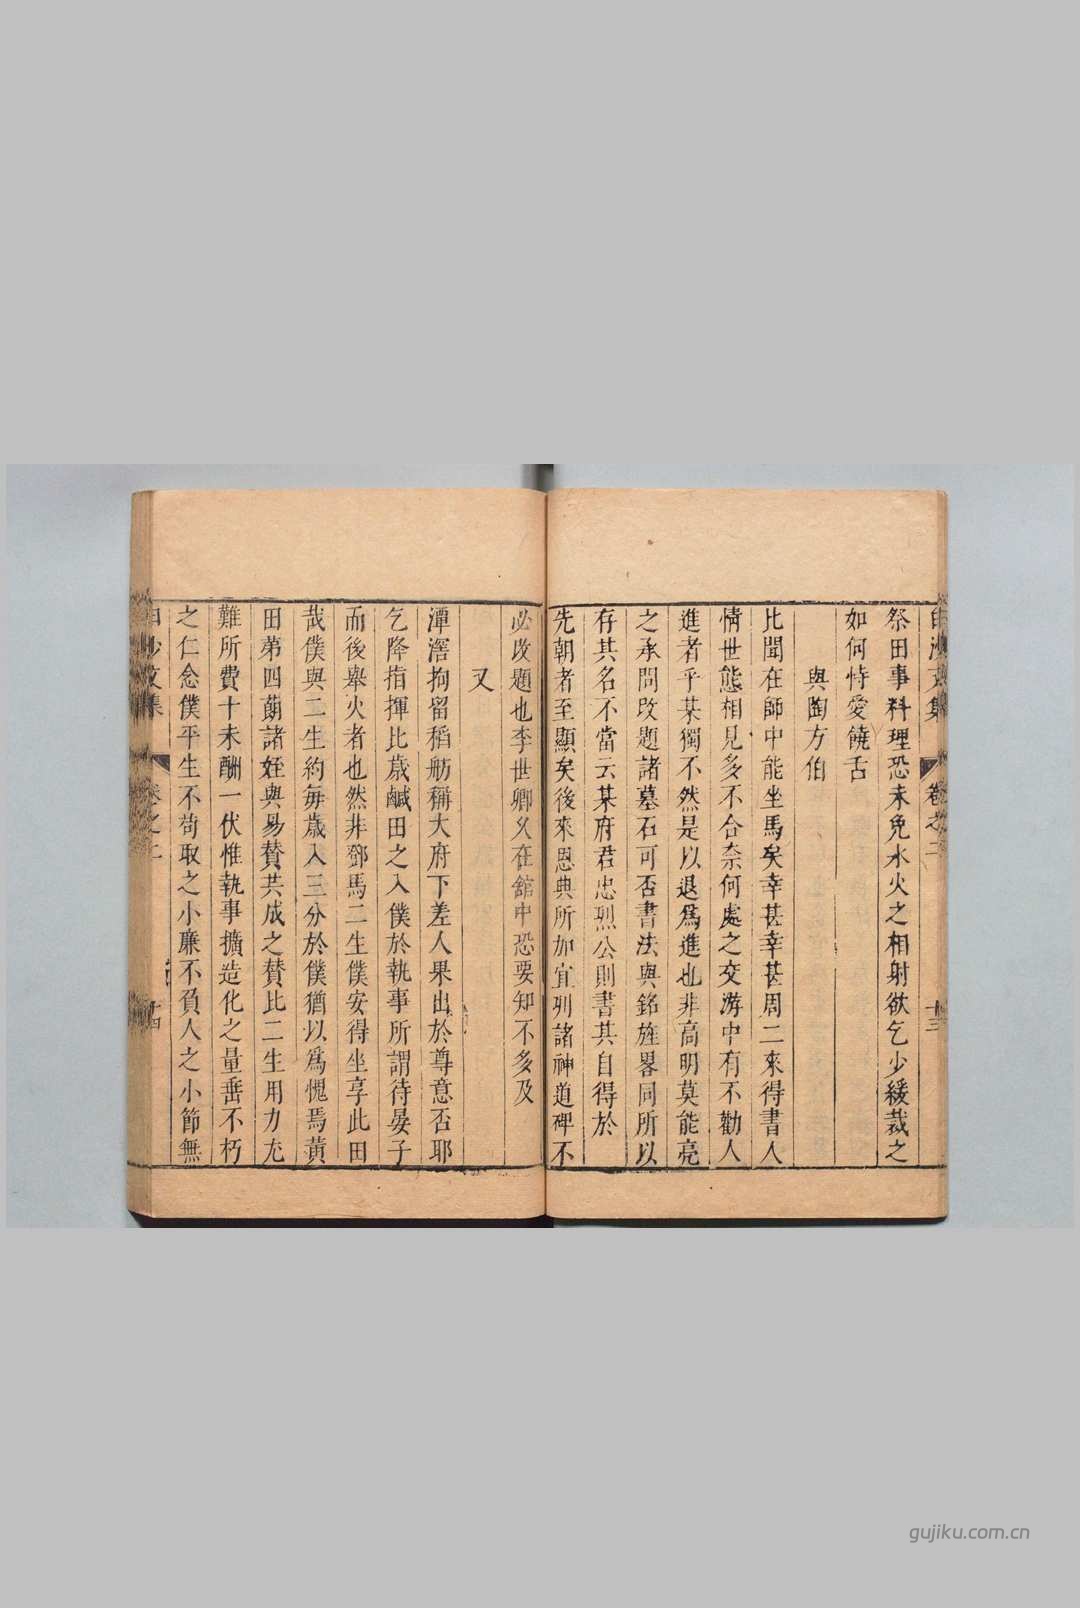 祭田事料理恐未免水火之相射欲乞少緩裁之
如何恃愛饒舌
與陶方伯
比聞在師中能坐馬矣幸甚幸甚周二來得書人
情世態相見多不合奈何處之交游中有不勸人
進者乎某獨不然是以退爲進也非高明莫能亮
之承問改題諸墓石可否書法與銘旌畧同所以
存其名不當云某府君忠烈公則書其自得於
先朝者至顯矣後來恩典所加宜列諸神道碑不
必改題也李世卿久在館中恐要知不多及
又
潭滘拘留稻舫稱大府下差人果出於尊意否耶
乞降指揮比歲鹹田之入僕於執事所謂待晏子
而後舉火者也然非鄧馬二生僕安得坐享此田
哉僕與二生約每歲入三分於僕猶以爲愧焉黃
田第四蓢諸姪與易贊共成之贊比二生用力尤
難所費十未酬一伏惟執事擴造化之量垂不朽
之仁念僕平生不苟取之小廉不負人之小節無
白沙文集
卷之二
十三
白沙文集
卷之二
十四
gujiku.com.cn